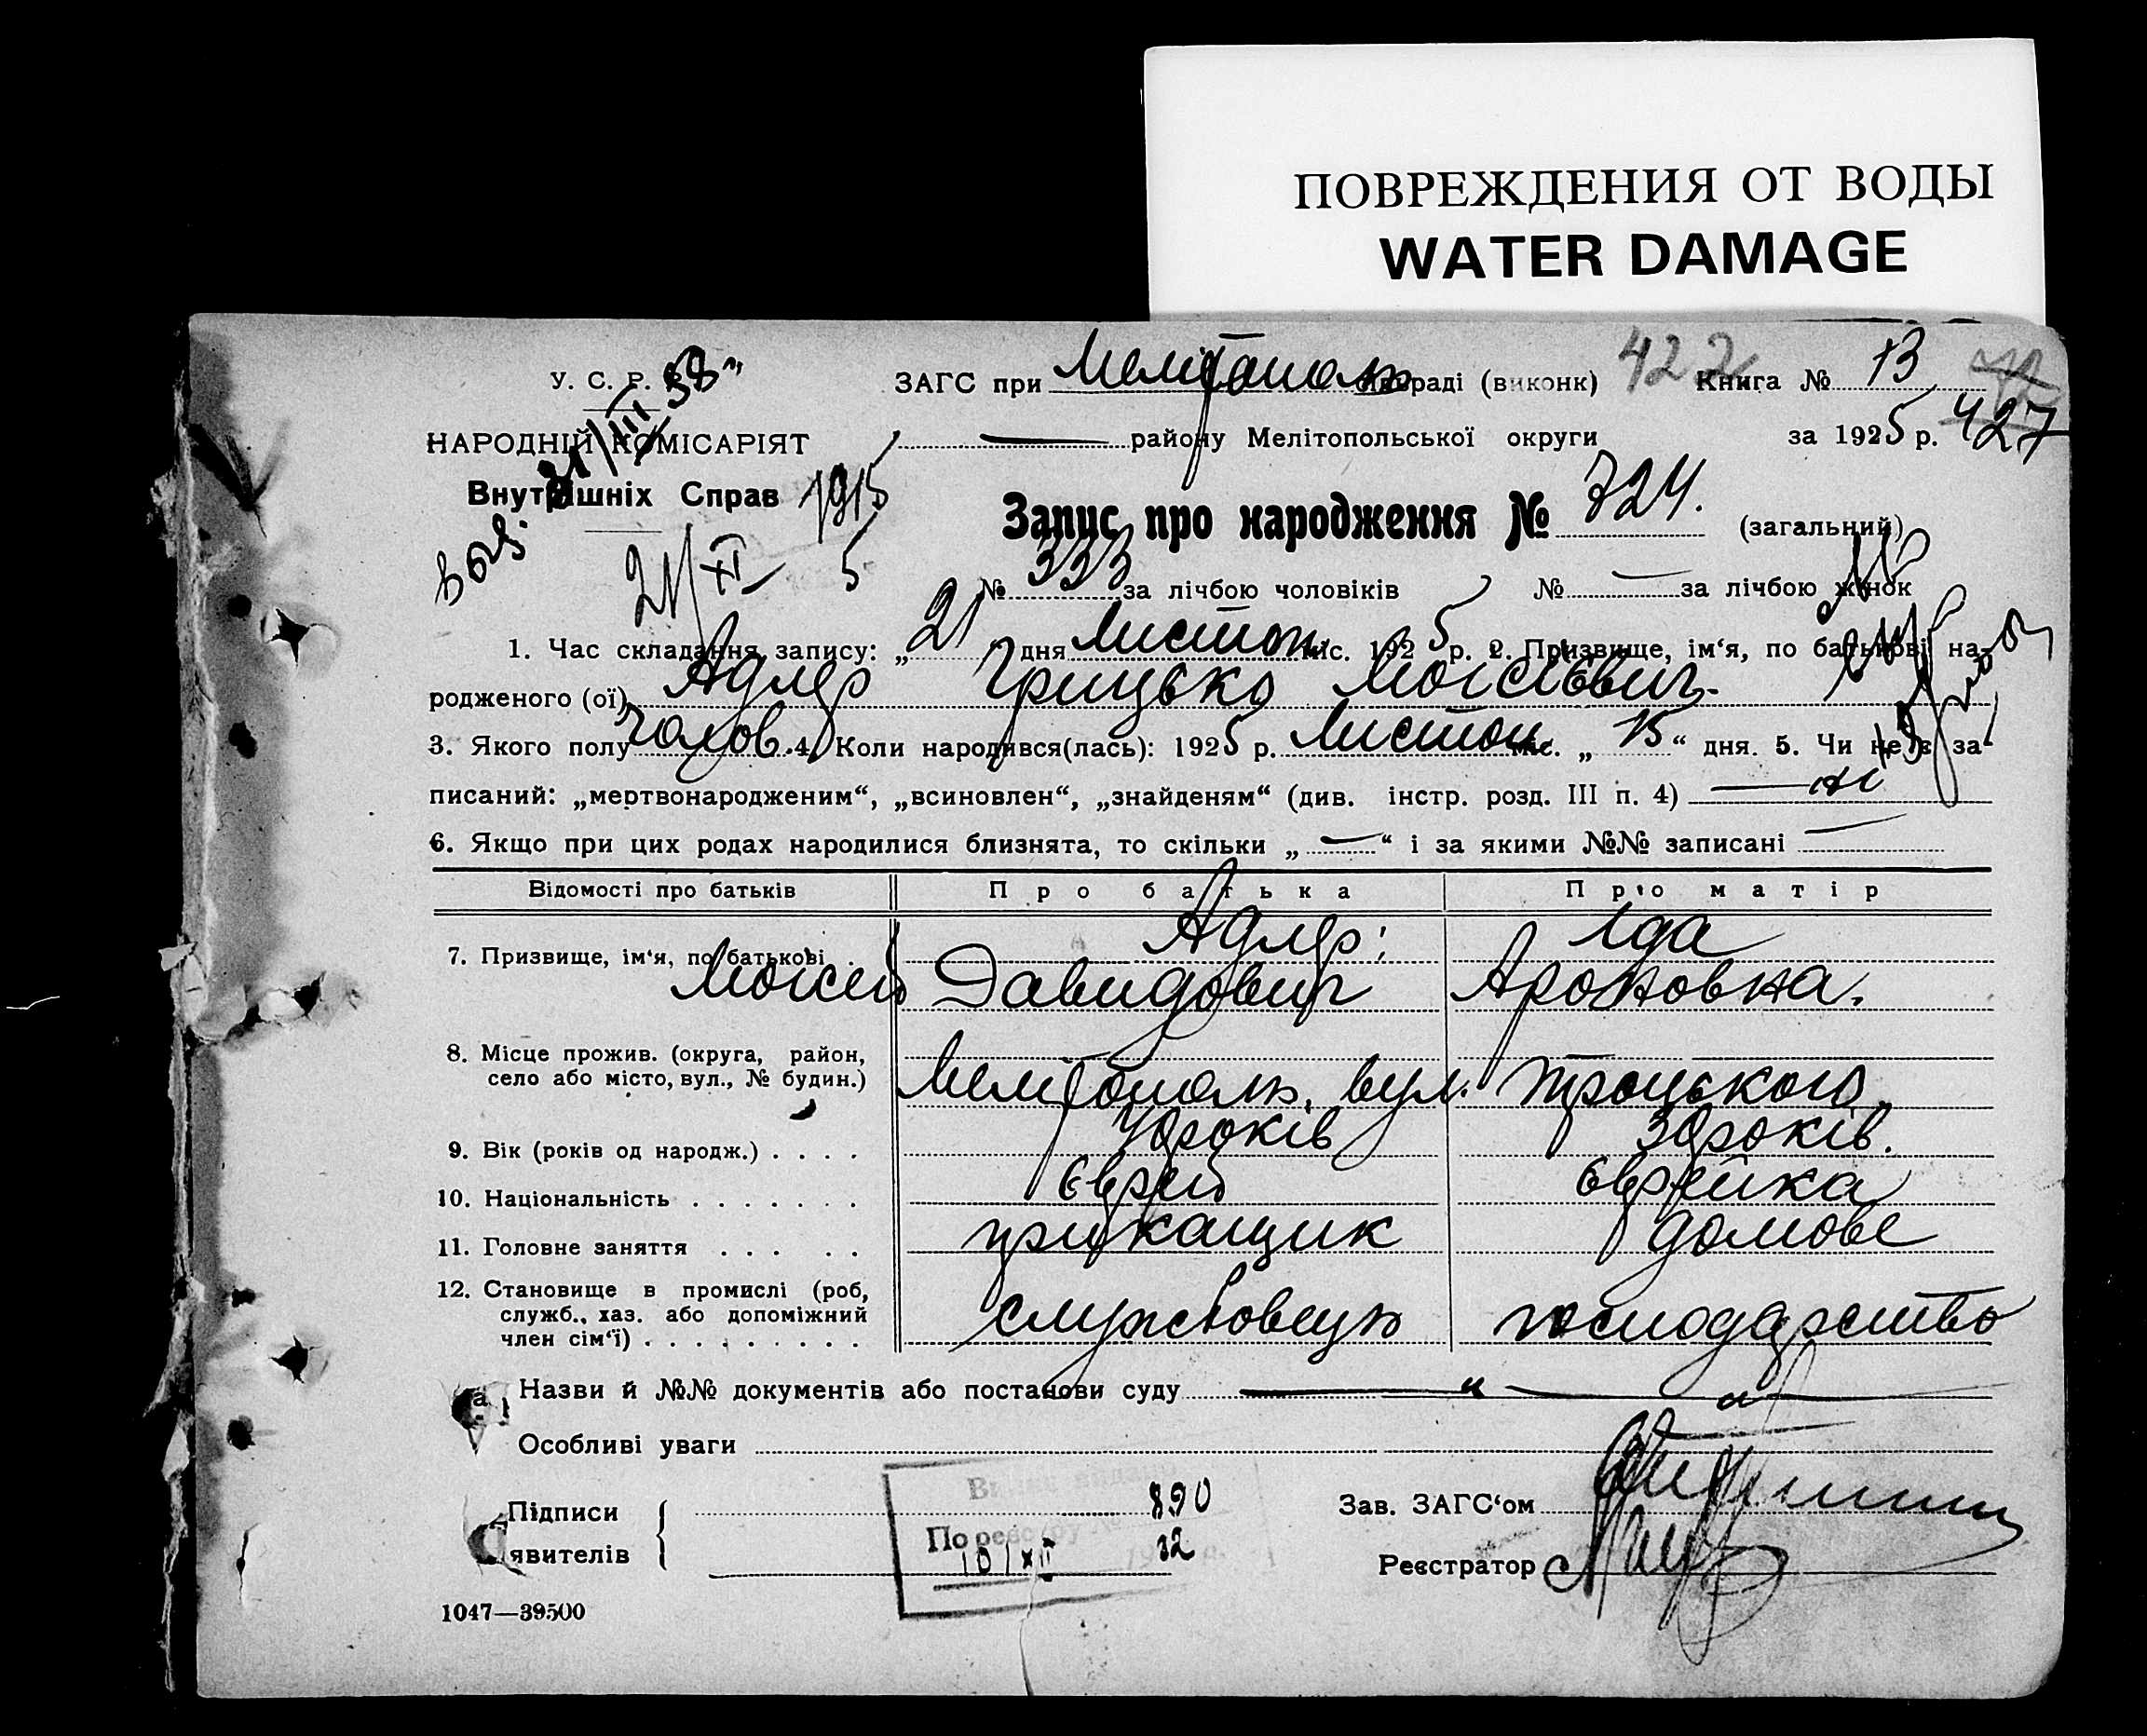 ПОВРЕЖДЕНИЯ ОТ ВОДЫ
WATER DAMAGE
У. С. Р. Р.
ЗАГС при Мелітополь міськраді (виконк) 422 Книга № 13
НАРОДНІЙ КОМІСАРІЯТ
— району Мелітопольської округи за 1925 р. 427
Внутрішніх Справ
Запис про народження № 724. (загальний)
21/XI 5
№ 333 за лічбою чоловіків № — за лічбою жінок
1. Час складання запису: „21 дня Листоп. міс. 1925 р. 2. Призвище, ім‘я, по батькові на-
родженого (ої) Адлер Грицько Мойсієвич.
3. Якого полу чолов. 4. Коли народився(лась): 1925 р. Листоп. міс. „ 15 “ дня. 5. Чи не є за-
писаний: „мертвонародженим“, „всиновлен“, „знайденям“ (див. інстр. розд. III п. 4) — ні
6. Якщо при цих родах народилися близнята, то скільки „ — “ і за якими №№ записані —
Відомості про батьків Про батька Про матір
7. Призвище, ім‘я, по батькові . Адлер: Іда
Мойсей Давидович Ароновна.
8. Місце прожив. (округа, район,
село або місто, вул., № будин.) Мелітополь, вул. Троцького
9. Вік (років од народж.) . . . . років 39 років.
10. Національність . . . . . . . Єврей Єврейка
11. Головне заняття . . . . . прикащик домове
12. Становище в промислі (роб,
служб., хаз. або допоміжний
член сім‘ї) . . . . . . . . . службовець господарство
Назви й №№ документів або постанови суду — „ —
Особливі уваги
Підписи
явителів
По реєстру № 890
10/XII 32
Зав. ЗАГС‘ом
Реєстратор
1047—39500